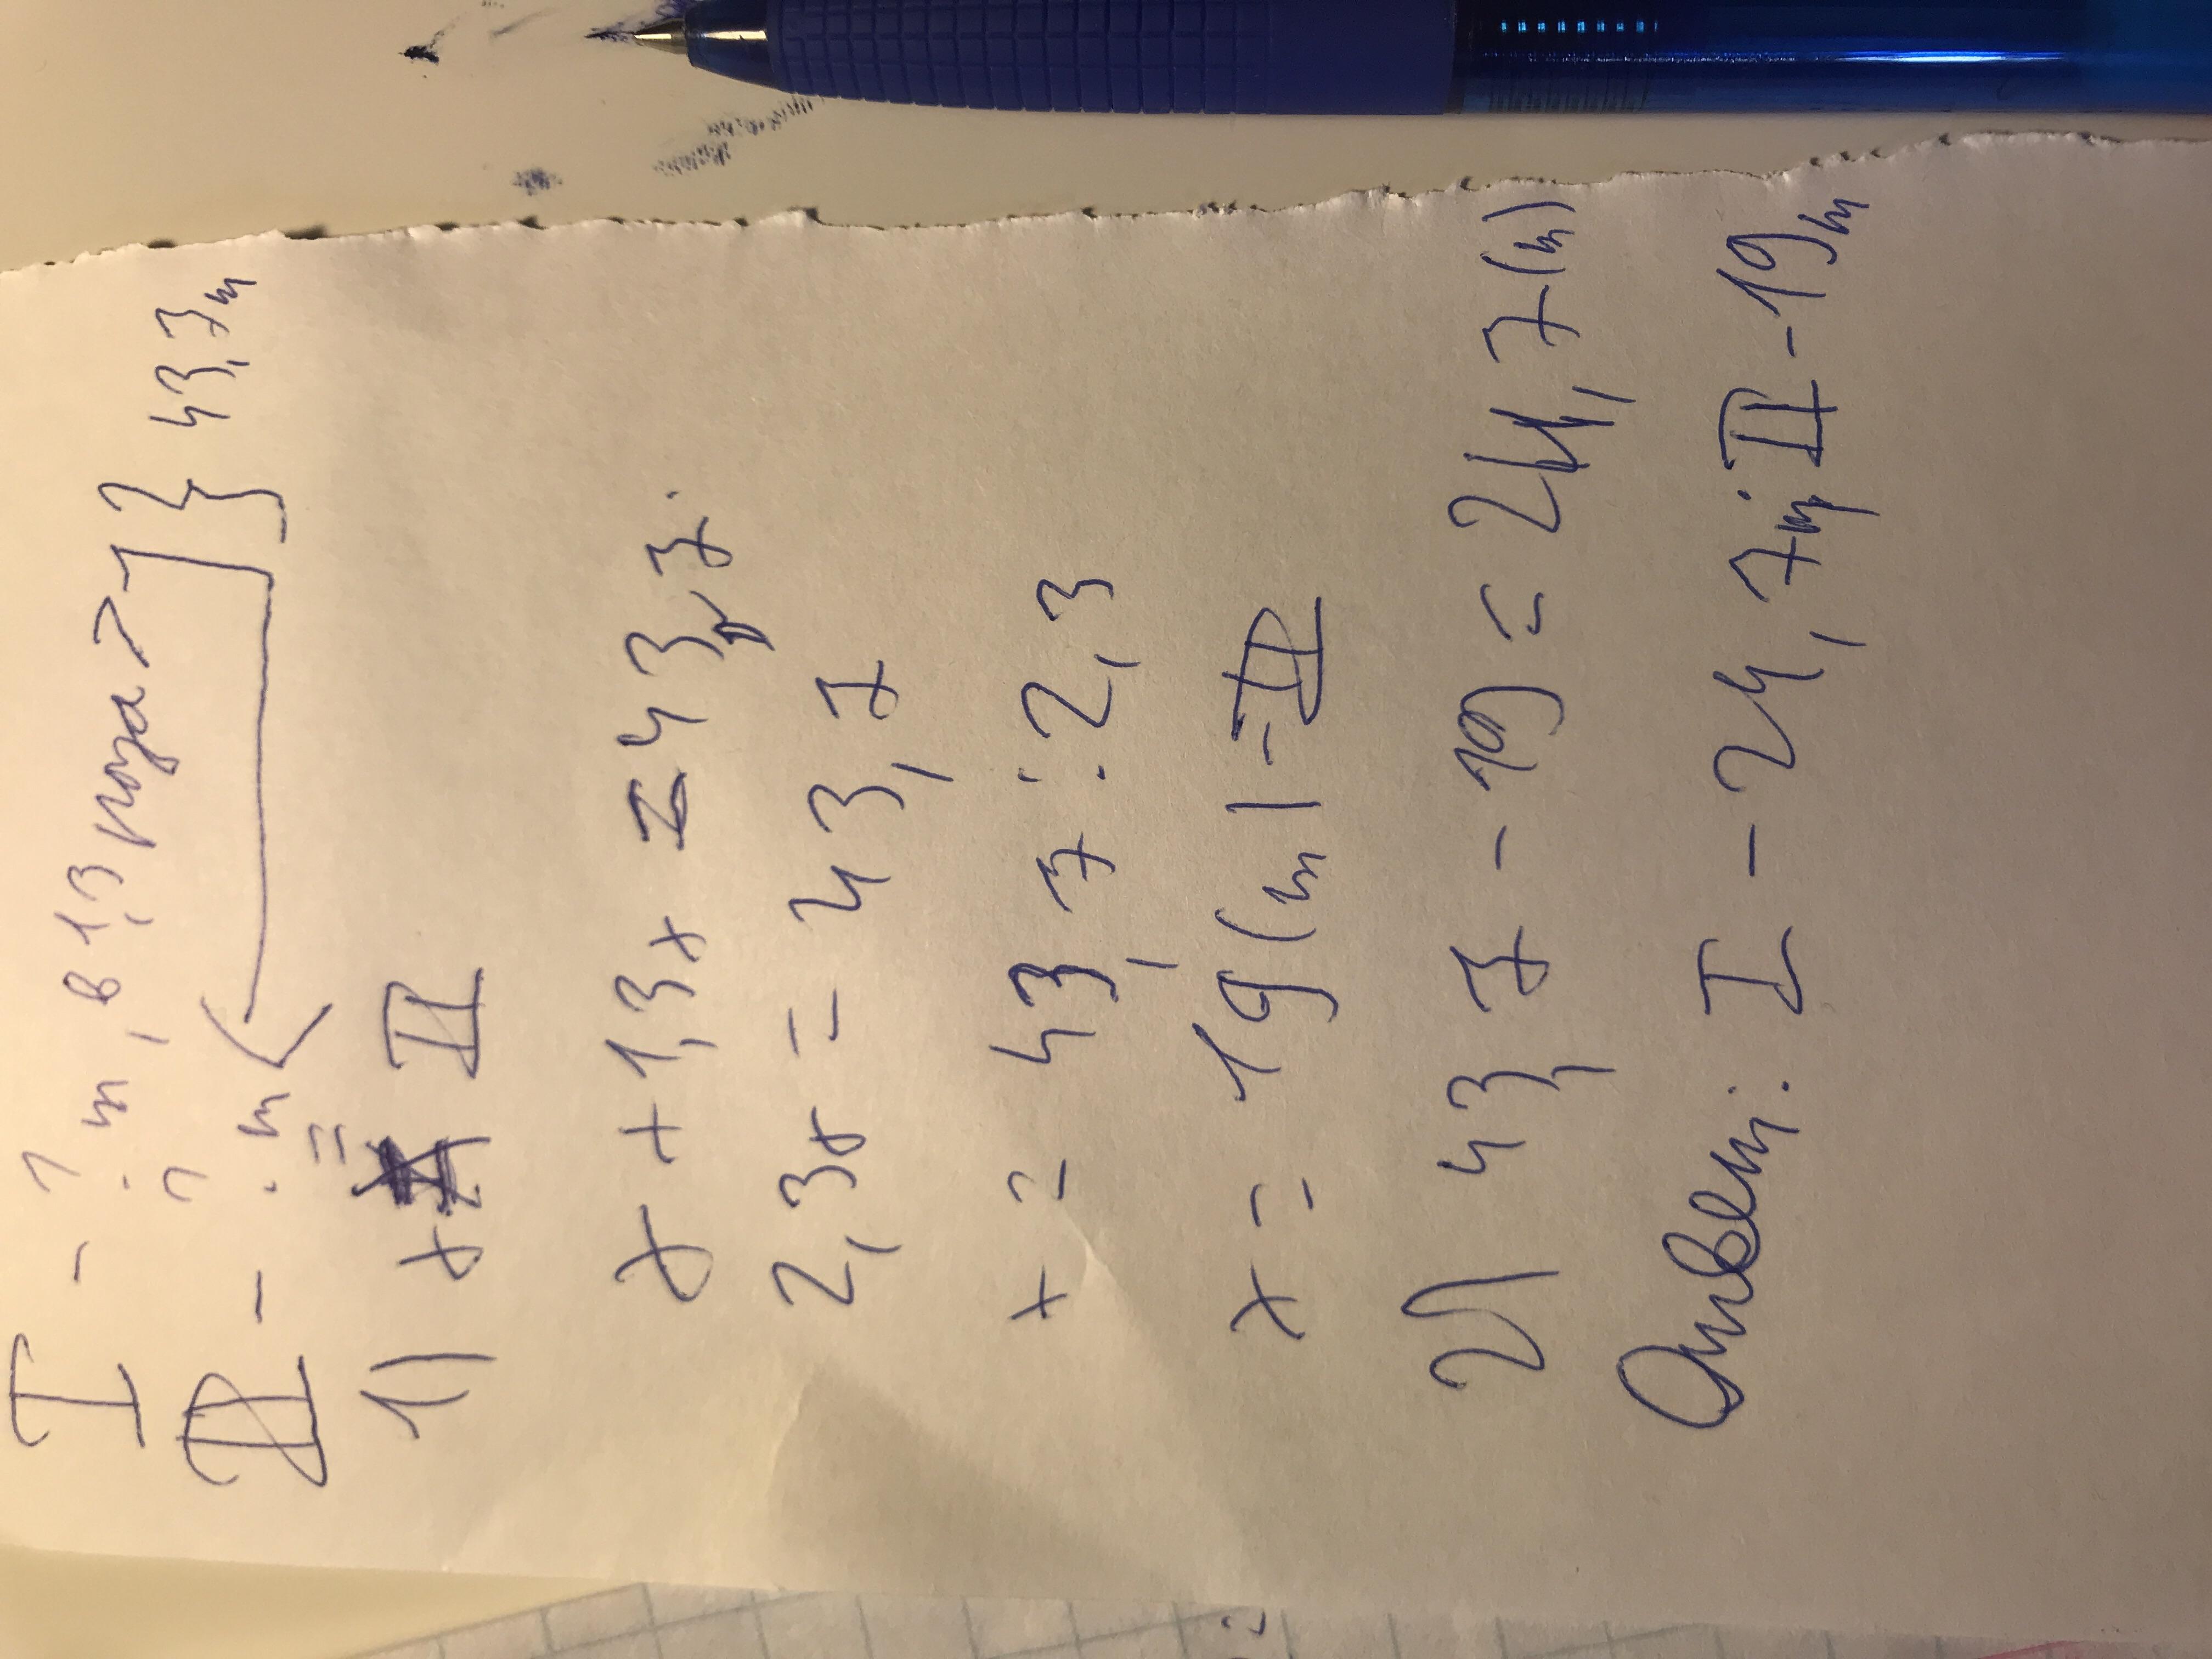 I - ? т, в 1,3 раза > ] } 43,7 т
II - ? т
1) x = II
x + 1,3x = 43,7
2,3x = 43,7
x = 43,7 : 2,3
x = 19 (т) - II
2) 43,7 - 19 = 24,7 (т)
Ответ: I - 24,7т; II - 19т